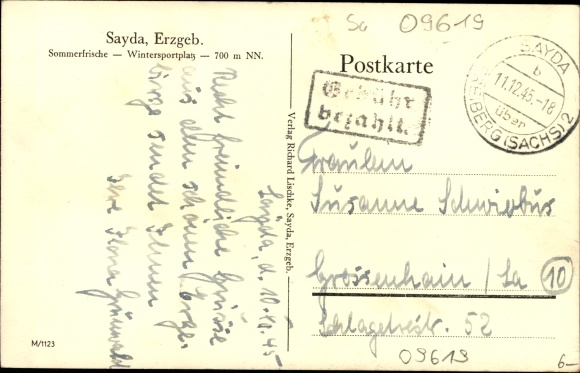 Sayda, Erzgeb.
Sommerfrische — Wintersportplatz — 700 m NN.
Sayda, d. 10.12.45
Recht freundliche Grüsse
aus dem schönen Erzge-
birge sendet Ihnen
Ihre Ilona Grünwald
M/1123
Verlag Richard Lischke, Sayda, Erzgeb.
Sa 09619
Postkarte
Gebühr
bezahlt.
SAYDA
b
11.12.45.-18
über
FREIBERG (SACHS) 2
Fräulein
Susanne Schwiebus
Grossenhain / Sa 10
Schlageterstr. 52
09619
6-